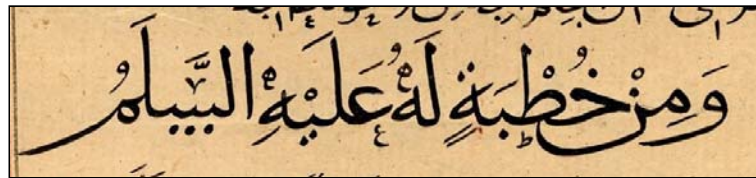 وَمِنْ خُطْبَةٍ لَهُ عَلَيْهِ السَّلَمُ